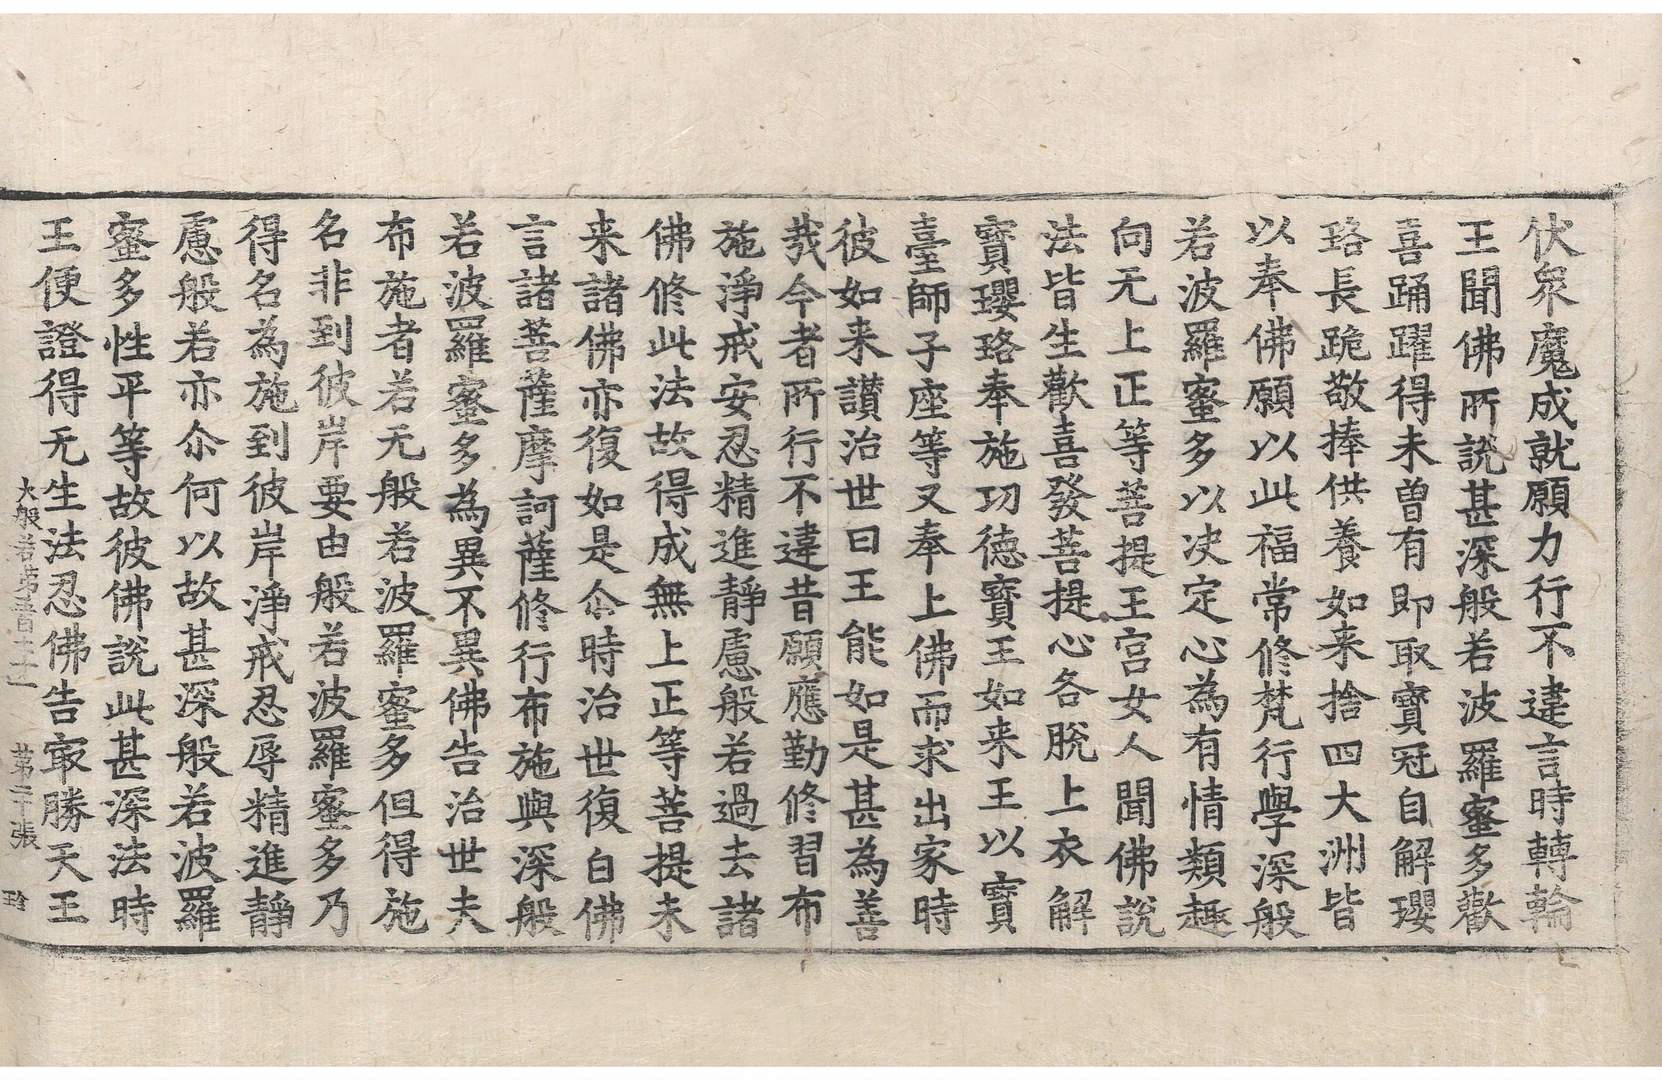 伏衆魔成就願力行不違言時轉輪
王聞佛所說甚深般若波羅蜜多歡
喜踊躍得未曾有即取寶冠自解瓔
珞長跪敬捧供養如来捨四大洲皆
以奉佛願以此福常修梵行學深般
若波羅蜜多以决定心為有情類趣
向无上正等菩提王宫女人聞佛說
法皆生歡喜發菩提心各脫上衣解
寶瓔珞奉施功德寶王如来王以寶
臺師子座等又奉上佛而求出家時
彼如来讃治世曰王能如是甚為善
㦲今者所行不違昔願應勤修習布
施淨戒安忍精進靜慮般若過去諸
佛修此法故得成無上正等菩提未
来諸佛亦復如是尒時治世復白佛
言諸菩薩摩訶薩修行布施與深般
若波羅蜜多為異不異佛告治世夫
布施者若无般若波羅蜜多但得施
名非到彼岸要由般若波羅蜜多乃
得名為施到彼岸淨戒忍辱精進靜
慮般若亦尒何以故甚深般若波羅
蜜多性平等故彼佛說此甚深法時
王便證得无生法忍佛告㝡勝天王
大般若第 第二十張